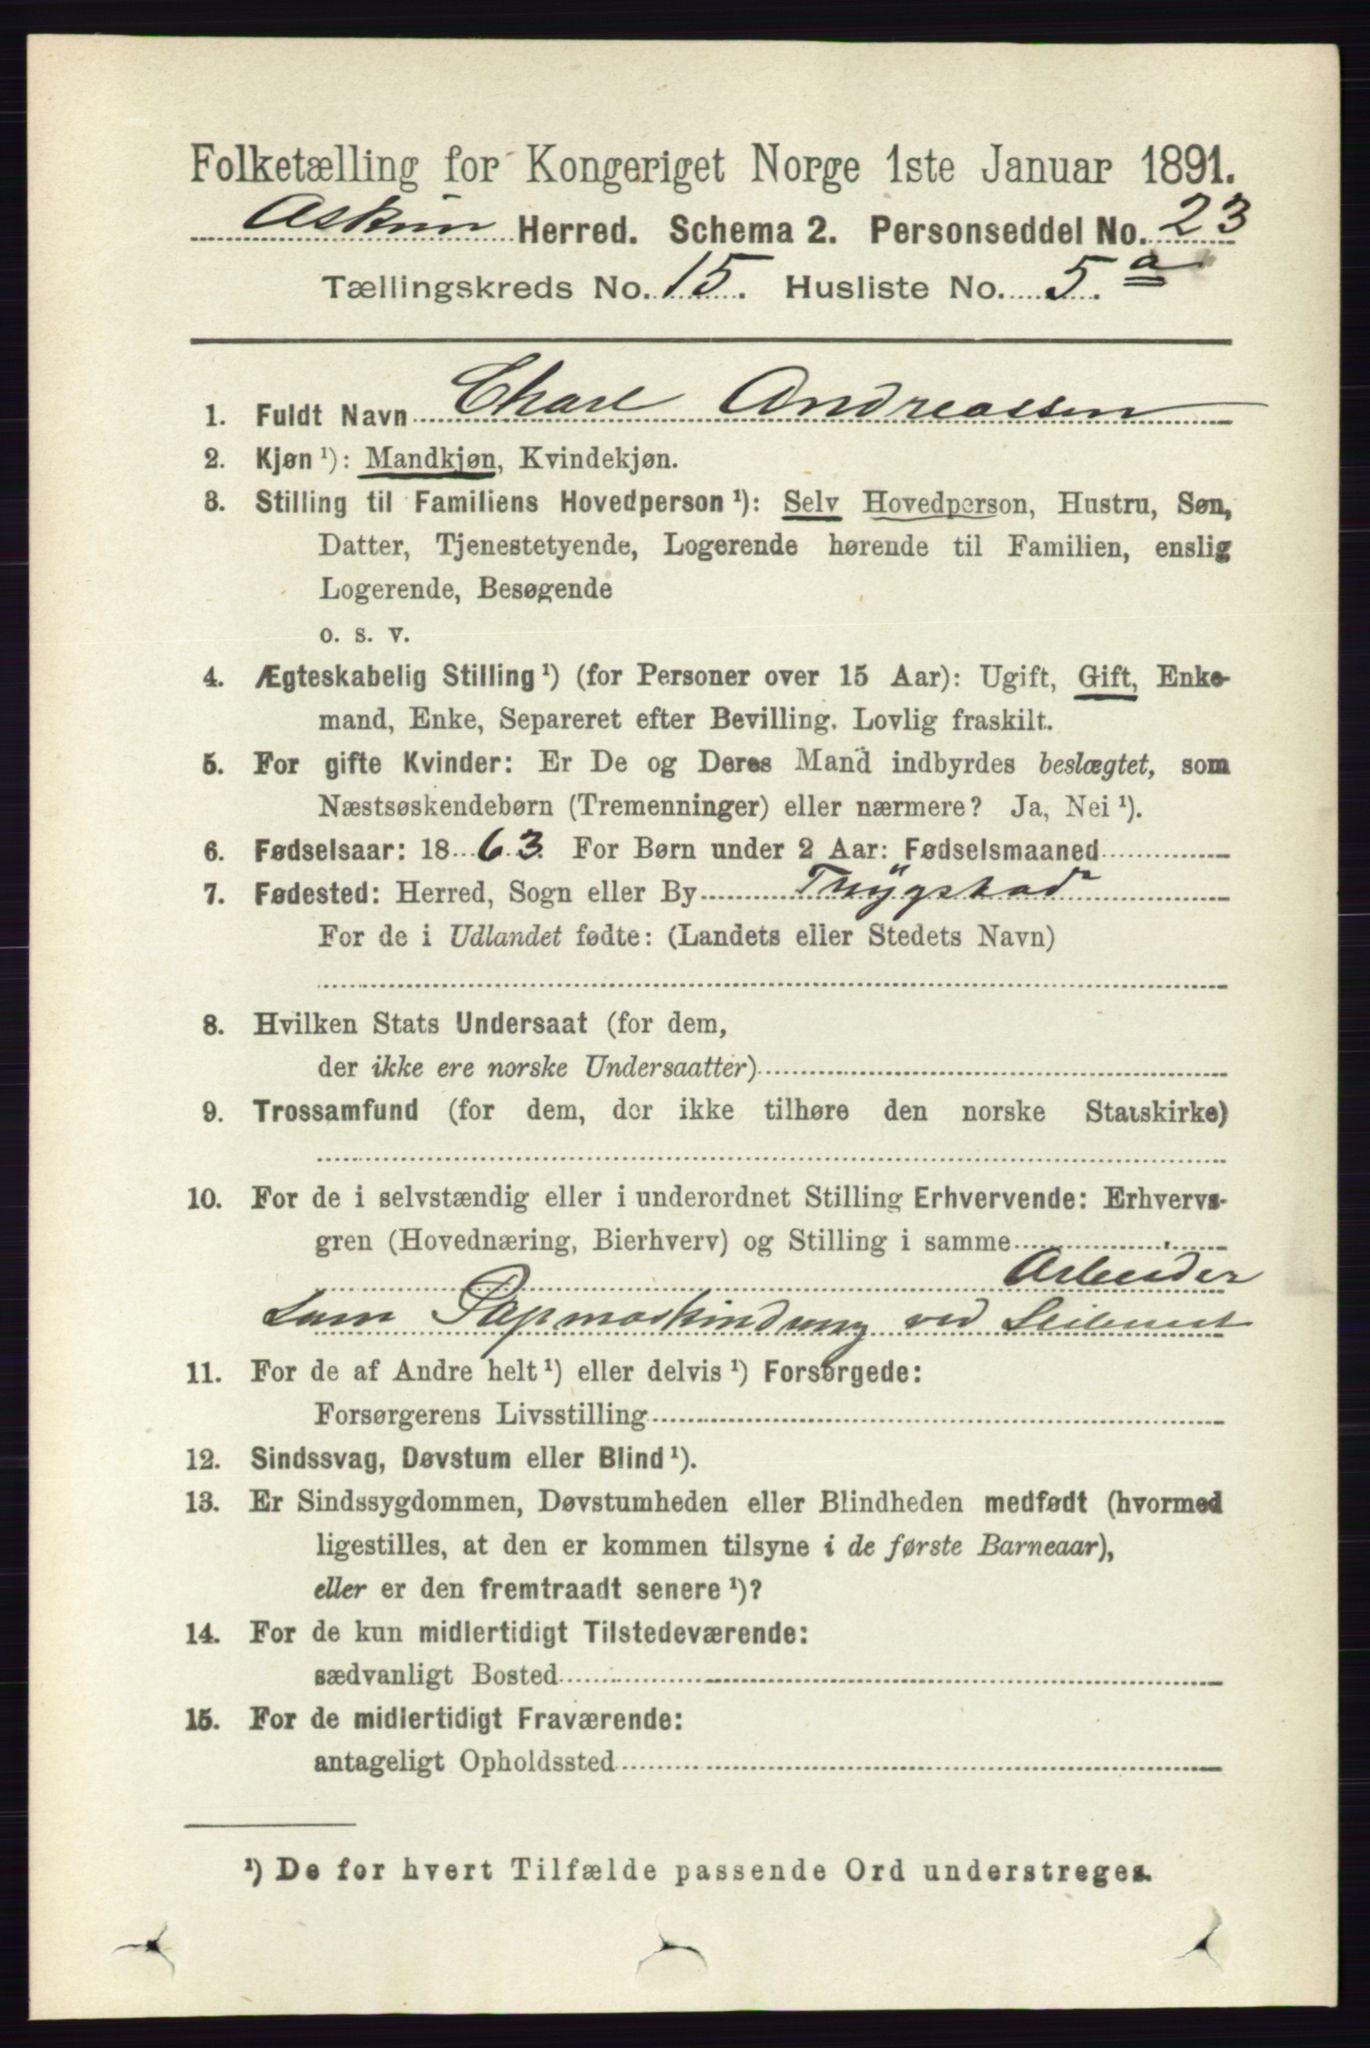 Folketælling for Kongeriget Norge 1ste Januar 1891.
Askim Herred. Schema 2. Personseddel No. 23
Tællingskreds No. 15. Husliste No. 5.a
1. Fuldt Navn Charl Andreassen
2. Kjøn ¹): Mandkjøn, Kvindekjøn.
3. Stilling til Familiens Hovedperson ¹): Selv Hovedperson, Hustru, Søn,
Datter, Tjenestetyende, Logerende hørende til Familien, enslig
Logerende, Besøgende
o. s. v.
4. Ægteskabelig Stilling ¹) (for Personer over 15 Aar): Ugift, Gift, Enke-
mand, Enke, Separeret efter Bevilling. Lovlig fraskilt.
5. For gifte Kvinder: Er De og Deres Mand indbyrdes beslægtet, som
Næstsøskendebørn (Tremenninger) eller nærmere? Ja, Nei ¹).
6. Fødselsaar: 1863. For Børn under 2 Aar: Fødselsmaaned
7. Fødested: Herred, Sogn eller By Trygstad
For de i Udlandet fødte: (Landets eller Stedets Navn)
8. Hvilken Stats Undersaat (for dem,
der ikke ere norske Undersaatter)
9. Trossamfund (for dem, der ikke tilhøre den norske Statskirke)
10. For de i selvstændig eller i underordnet Stilling Erhvervende: Erhvervs-
gren (Hovednæring, Bierhverv) og Stilling i samme
Arbeider
som Papmaskin ved
11. For de af Andre helt ¹) eller delvis ¹) Forsørgede:
Forsørgerens Livsstilling
12. Sindssvag, Døvstum eller Blind ¹).
13. Er Sindssygdommen, Døvstumheden eller Blindheden medfødt (hvormed
ligestilles, at den er kommen tilsyne i de første Barneaar),
eller er den fremtraadt senere ¹)?
14. For de kun midlertidigt Tilstedeværende:
sædvanligt Bosted
15. For de midlertidigt Fraværende:
antageligt Opholdssted
¹) De for hvert Tilfælde passende Ord understreges.